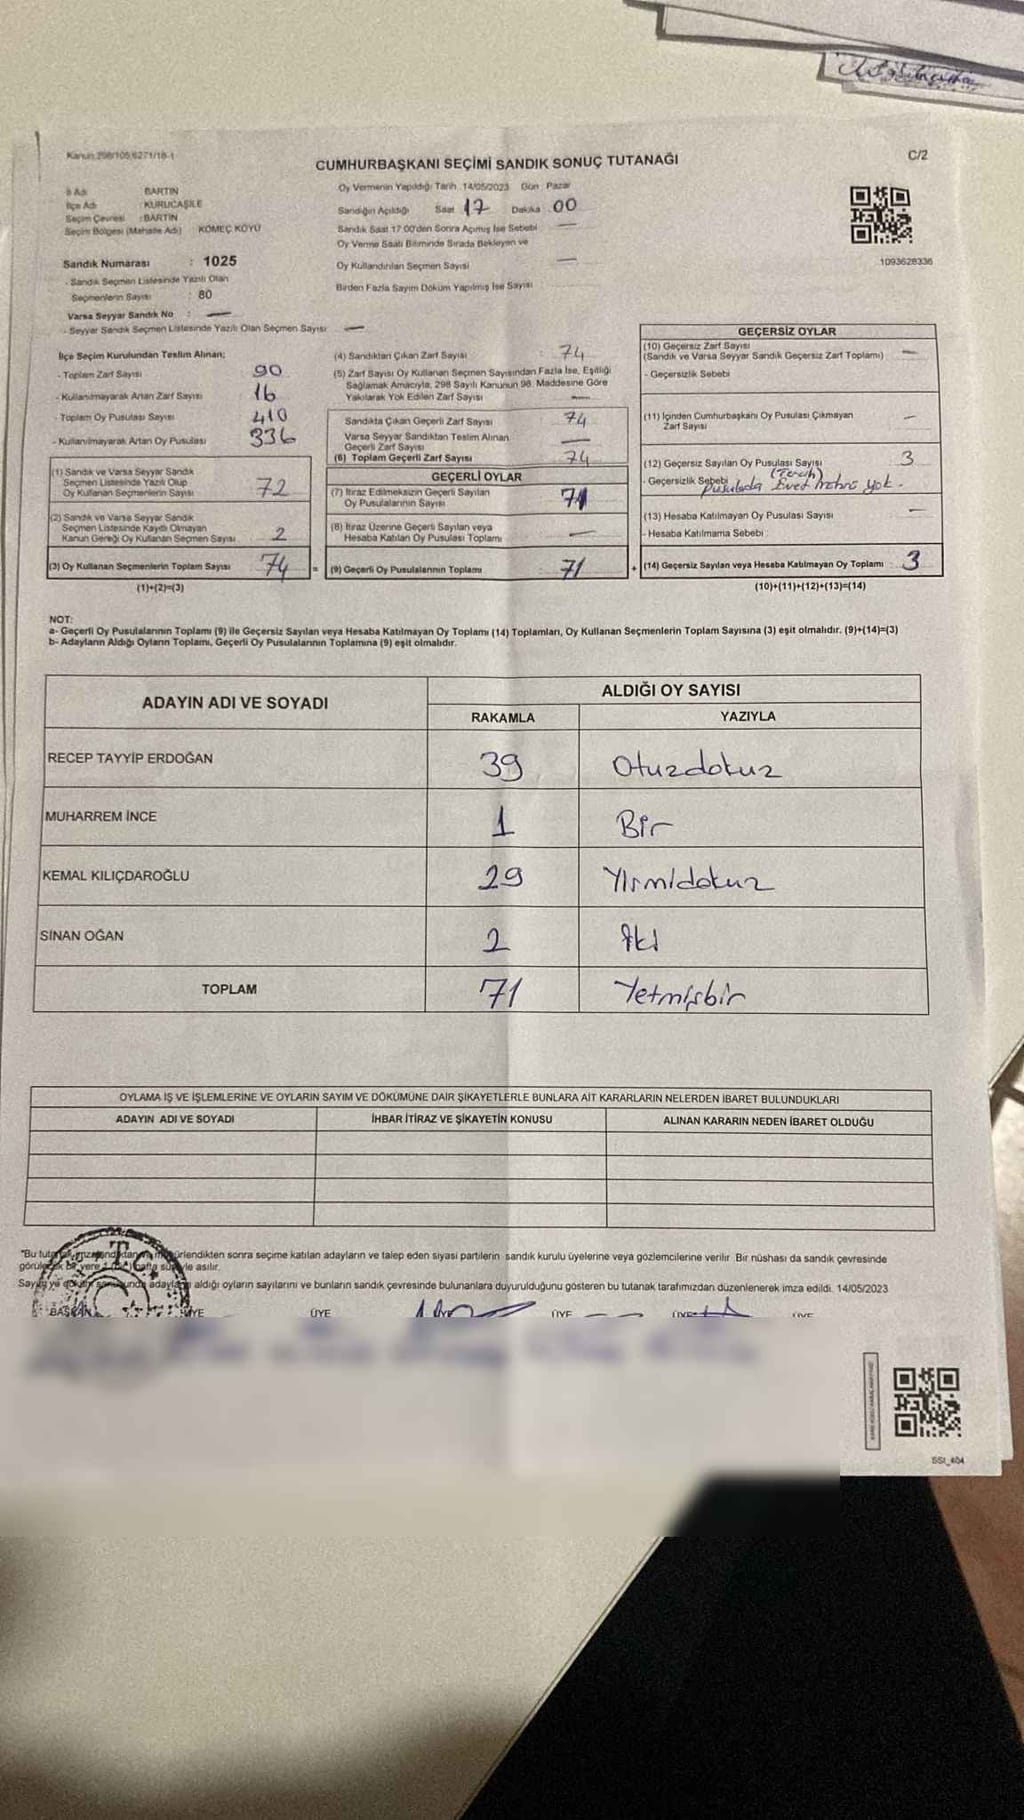 Kanun:298/105,6271/18-1
CUMHURBAŞKANI SEÇİMİ SANDIK SONUÇ TUTANAĞI
C/2
İl Adı BARTIN
İlçe Adı : KURUCAŞİLE
Seçim Çevresi : BARTIN
Seçim Bölgesi (Mahalle Adı) : KÖMEÇ KÖYÜ
Sandık Numarası : 1025
- Sandık Seçmen Listesinde Yazılı Olan
Seçmenlerin Sayısı : 80
Varsa Seyyar Sandık No : —
- Seyyar Sandık Seçmen Listesinde Yazılı Olan Seçmen Sayısı —
Oy Vermenin Yapıldığı Tarih 14/05/2023 Gün Pazar
Sandığın Açıldığı Saat 17 Dakika 00
Sandık Saat 17.00'den Sonra Açılmış İse Sebebi —
Oy Verme Saati Bitiminde Sırada Bekleyen ve
Oy Kullandırılan Seçmen Sayısı —
Birden Fazla Sayım Döküm Yapılmış İse Sayısı
1093628336
İlçe Seçim Kurulundan Teslim Alınan;
- Toplam Zarf Sayısı 90
- Kullanılmayarak Artan Zarf Sayısı 16
- Toplam Oy Pusulası Sayısı 410
- Kullanılmayarak Artan Oy Pusulası 336
(1) Sandık ve Varsa Seyyar Sandık
Seçmen Listesinde Yazılı Olup
Oy Kullanan Seçmenlerin Sayısı 72
(2) Sandık ve Varsa Seyyar Sandık
Seçmen Listesinde Kayıtlı Olmayan
Kanun Gereği Oy Kullanan Seçmen Sayısı 2
(3) Oy Kullanan Seçmenlerin Toplam Sayısı 74 =
(1)+(2)=(3)
(4) Sandıktan Çıkan Zarf Sayısı : 74
(5) Zarf Sayısı Oy Kullanan Seçmen Sayısından Fazla İse, Eşitliği
Sağlamak Amacıyla, 298 Sayılı Kanunun 98. Maddesine Göre
Yakılarak Yok Edilen Zarf Sayısı —
Sandıkta Çıkan Geçerli Zarf Sayısı 74
Varsa Seyyar Sandıktan Teslim Alınan
Geçerli Zarf Sayısı —
(6) Toplam Geçerli Zarf Sayısı 74
GEÇERLİ OYLAR
(7) İtiraz Edilmeksizin Geçerli Sayılan
Oy Pusulalarının Sayısı 71
(8) İtiraz Üzerine Geçerli Sayılan veya
Hesaba Katılan Oy Pusulası Toplamı —
(9) Geçerli Oy Pusulalarının Toplamı 71 +
GEÇERSİZ OYLAR
(10) Geçersiz Zarf Sayısı —
(Sandık ve Varsa Seyyar Sandık Geçersiz Zarf Toplamı)
- Geçersizlik Sebebi
(11) İçinden Cumhurbaşkanı Oy Pusulası Çıkmayan —
Zarf Sayısı
(12) Geçersiz Sayılan Oy Pusulası Sayısı 3
(Tercih)
- Geçersizlik Sebebi Pusulada Evet mührü yok.
(13) Hesaba Katılmayan Oy Pusulası Sayısı —
- Hesaba Katılmama Sebebi :
(14) Geçersiz Sayılan veya Hesaba Katılmayan Oy Toplamı : 3
(10)+(11)+(12)+(13)=(14)
NOT:
a- Geçerli Oy Pusulalarının Toplamı (9) ile Geçersiz Sayılan veya Hesaba Katılmayan Oy Toplamı (14) Toplamları, Oy Kullanan Seçmenlerin Toplam Sayısına (3) eşit olmalıdır. (9)+(14)=(3)
b- Adayların Aldığı Oyların Toplamı, Geçerli Oy Pusulalarının Toplamına (9) eşit olmalıdır.
ADAYIN ADI VE SOYADI
ALDIĞI OY SAYISI
RAKAMLA YAZIYLA
RECEP TAYYİP ERDOĞAN 39 Otuzdokuz
MUHARREM İNCE 1 Bir
KEMAL KILIÇDAROĞLU 29 Yirmidokuz
SİNAN OĞAN 2 İki
TOPLAM 71 Yetmişbir
OYLAMA İŞ VE İŞLEMLERİNE VE OYLARIN SAYIM VE DÖKÜMÜNE DAİR ŞİKAYETLERLE BUNLARA AİT KARARLARIN NELERDEN İBARET BULUNDUKLARI
ADAYIN ADI VE SOYADI İHBAR İTİRAZ VE ŞİKAYETİN KONUSU ALINAN KARARIN NEDEN İBARET OLDUĞU
"Bu mühürlendikten sonra seçime katılan adayların ve talep eden siyasi partilerin sandık kurulu üyelerine veya gözlemcilerine verilir. Bir nüshası da sandık çevresinde
bir yere 1 (bir) hafta süreyle asılır.
Sayım ve döküm adayların aldığı oyların sayılarını ve bunların sandık çevresinde bulunanlara duyurulduğunu gösteren bu tutanak tarafımızdan düzenlenerek imza edildi. 14/05/2023
BAŞKAN ÜYE ÜYE ÜYE ÜYE ÜYE
SSI_404